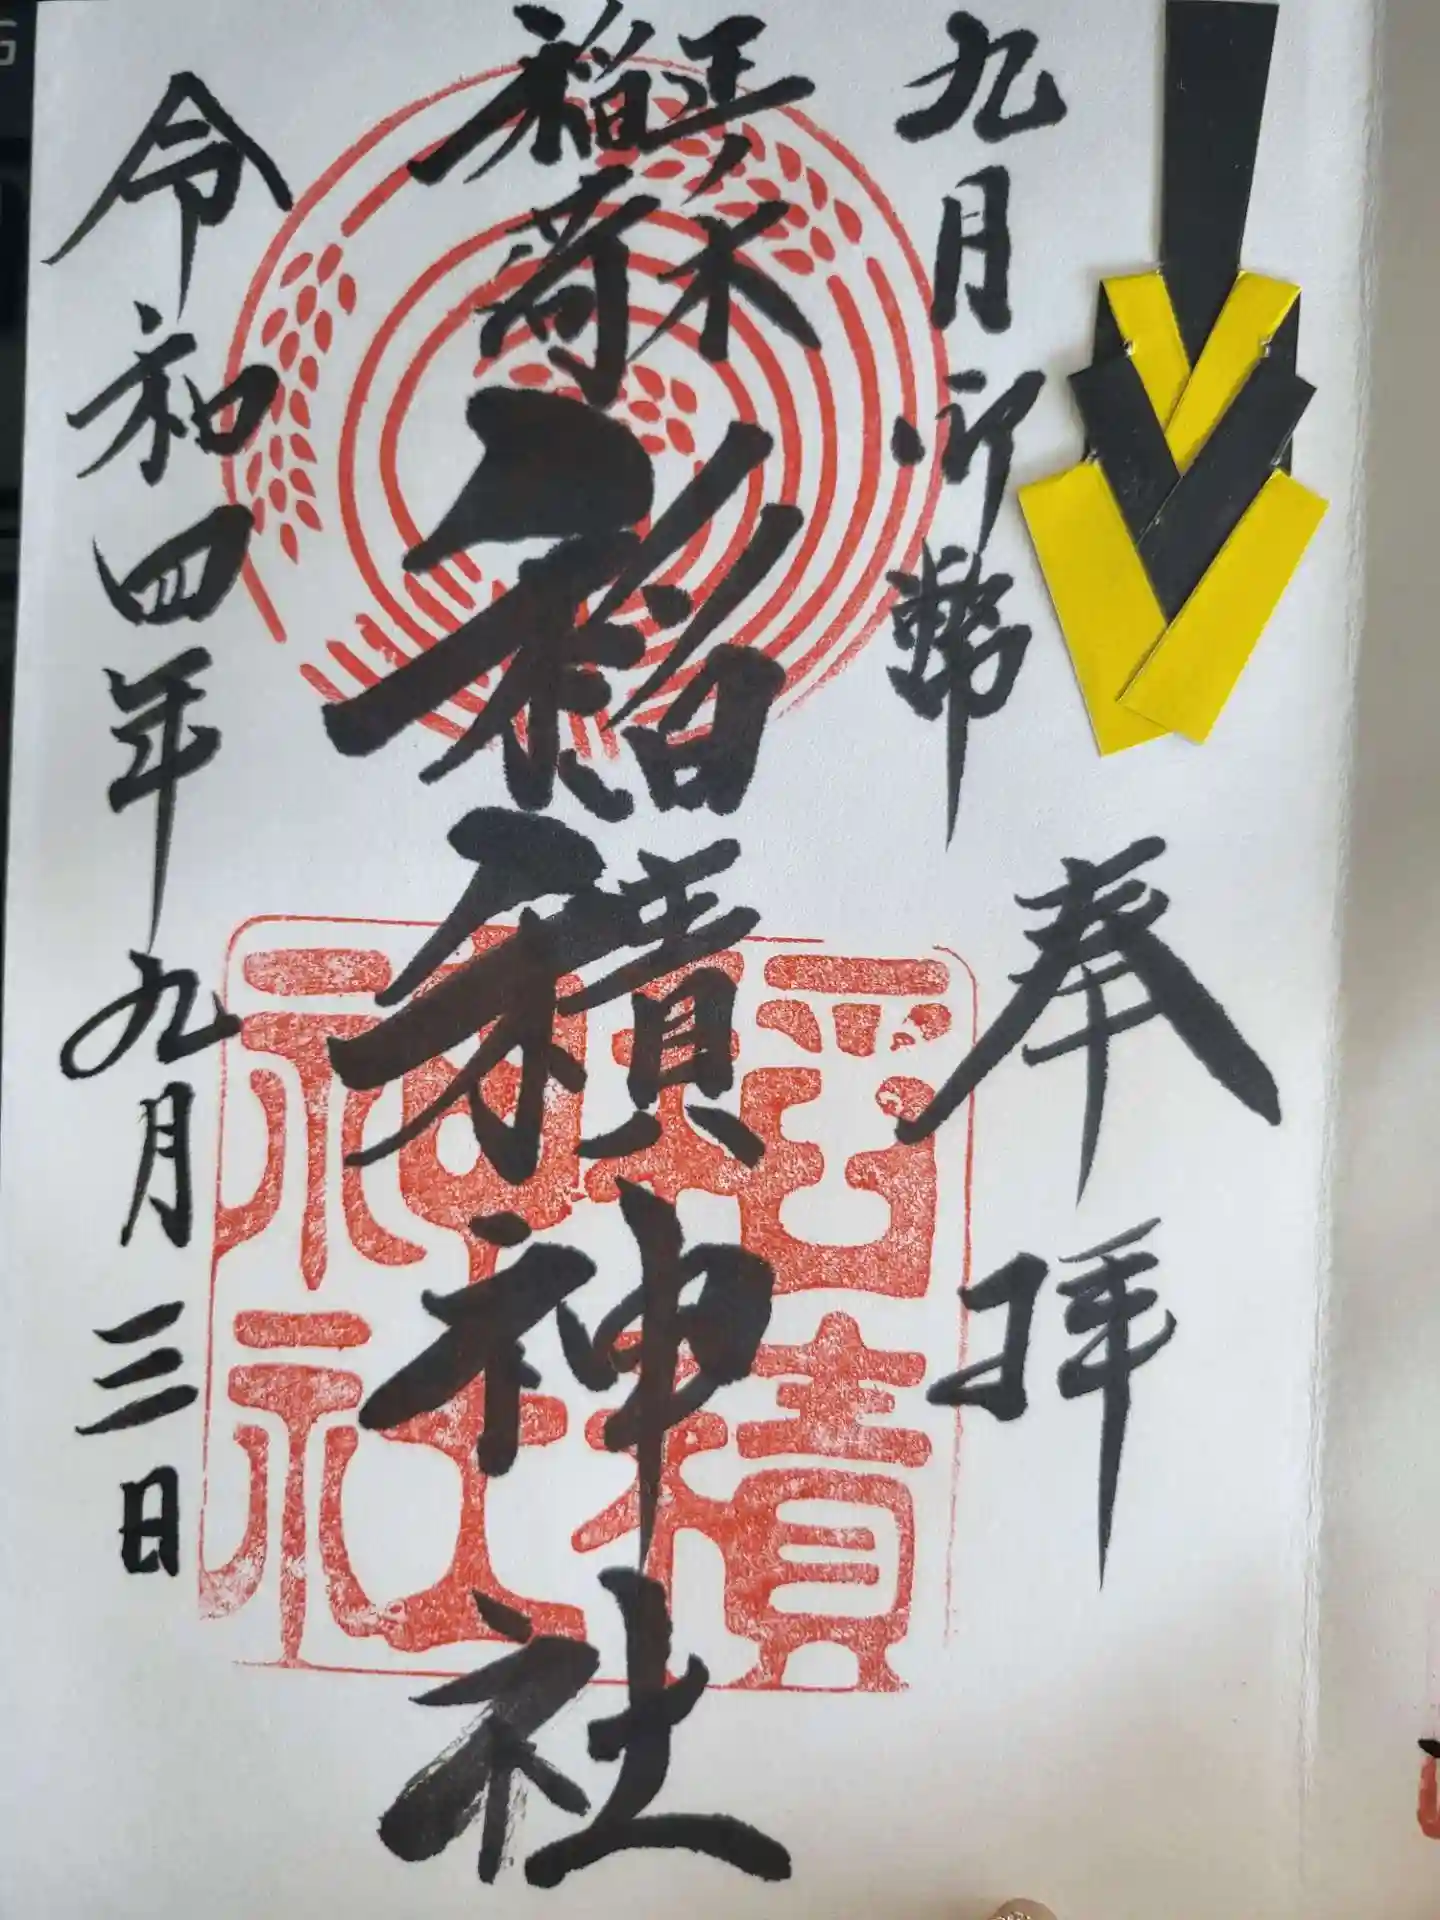 九月祈幣
奉拝
正ノ木
稲荷
稲積神社
令和四年九月三日
稲積
神社